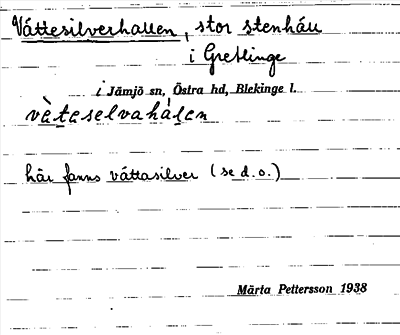 Váttesilverhallen, stor stenháll
i Grellinge
i Jämjö sn, Östra hd, Blekinge l.
vàtaselvahálan
här fanns váttasilver (se d.o.)
Märta Pettersson 1938